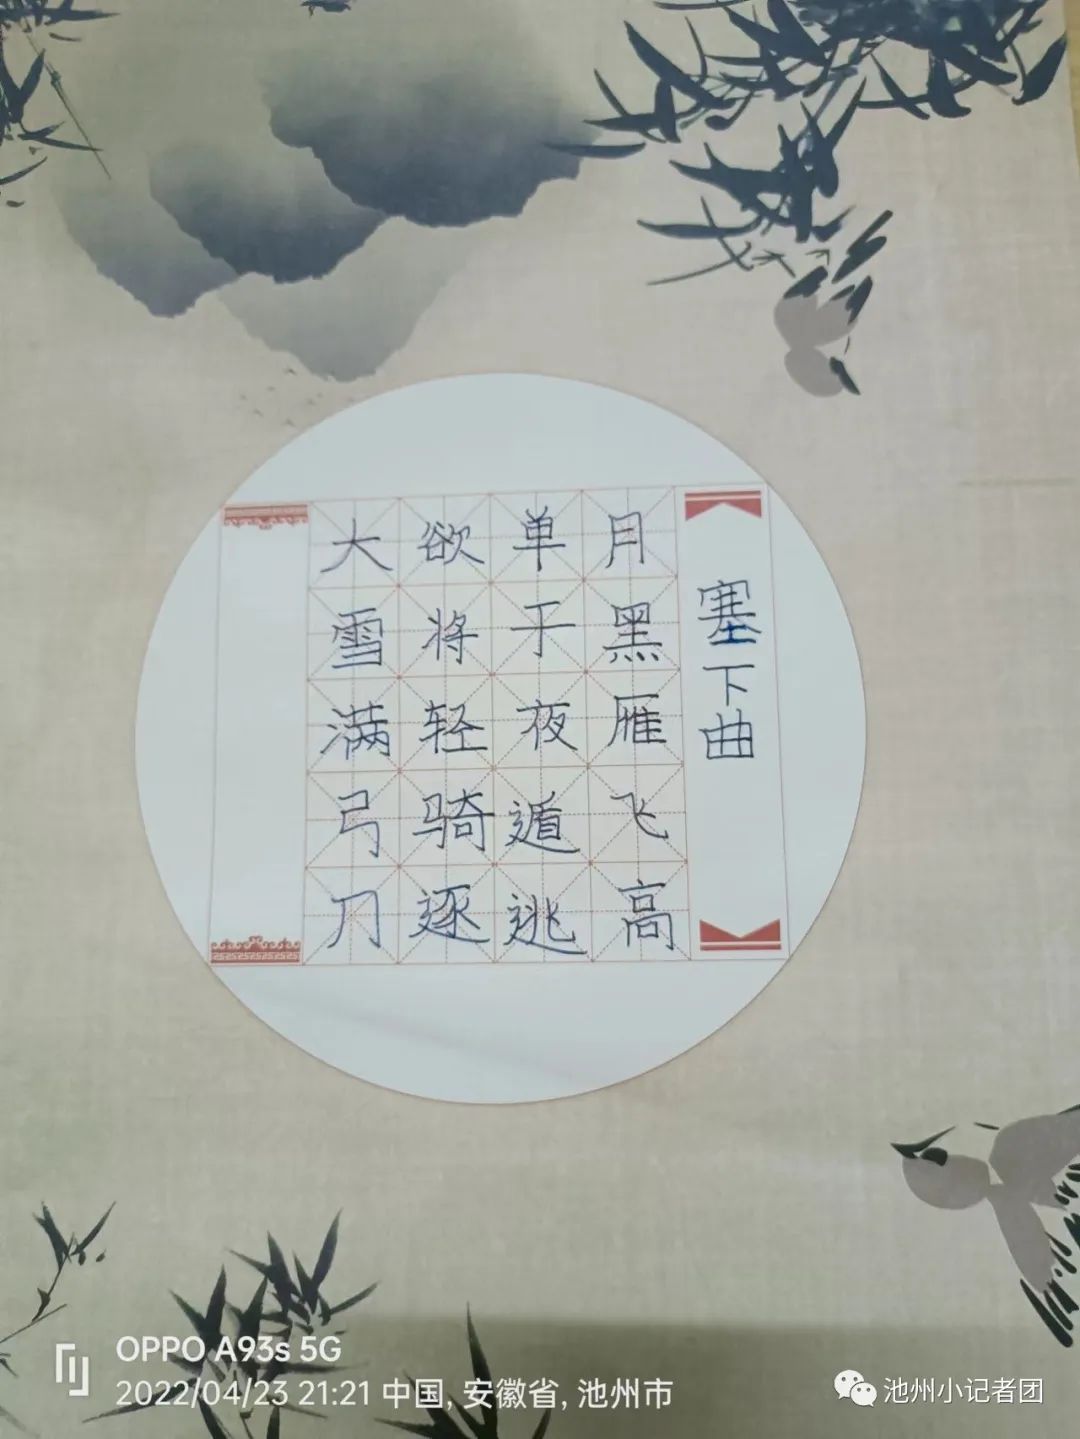 塞下曲
月黑雁飞高
单于夜遁逃
欲将轻骑逐
大雪满弓刀
OPPO A93s 5G
2022/04/23 21:21 中国, 安徽省, 池州市
池州小记者团